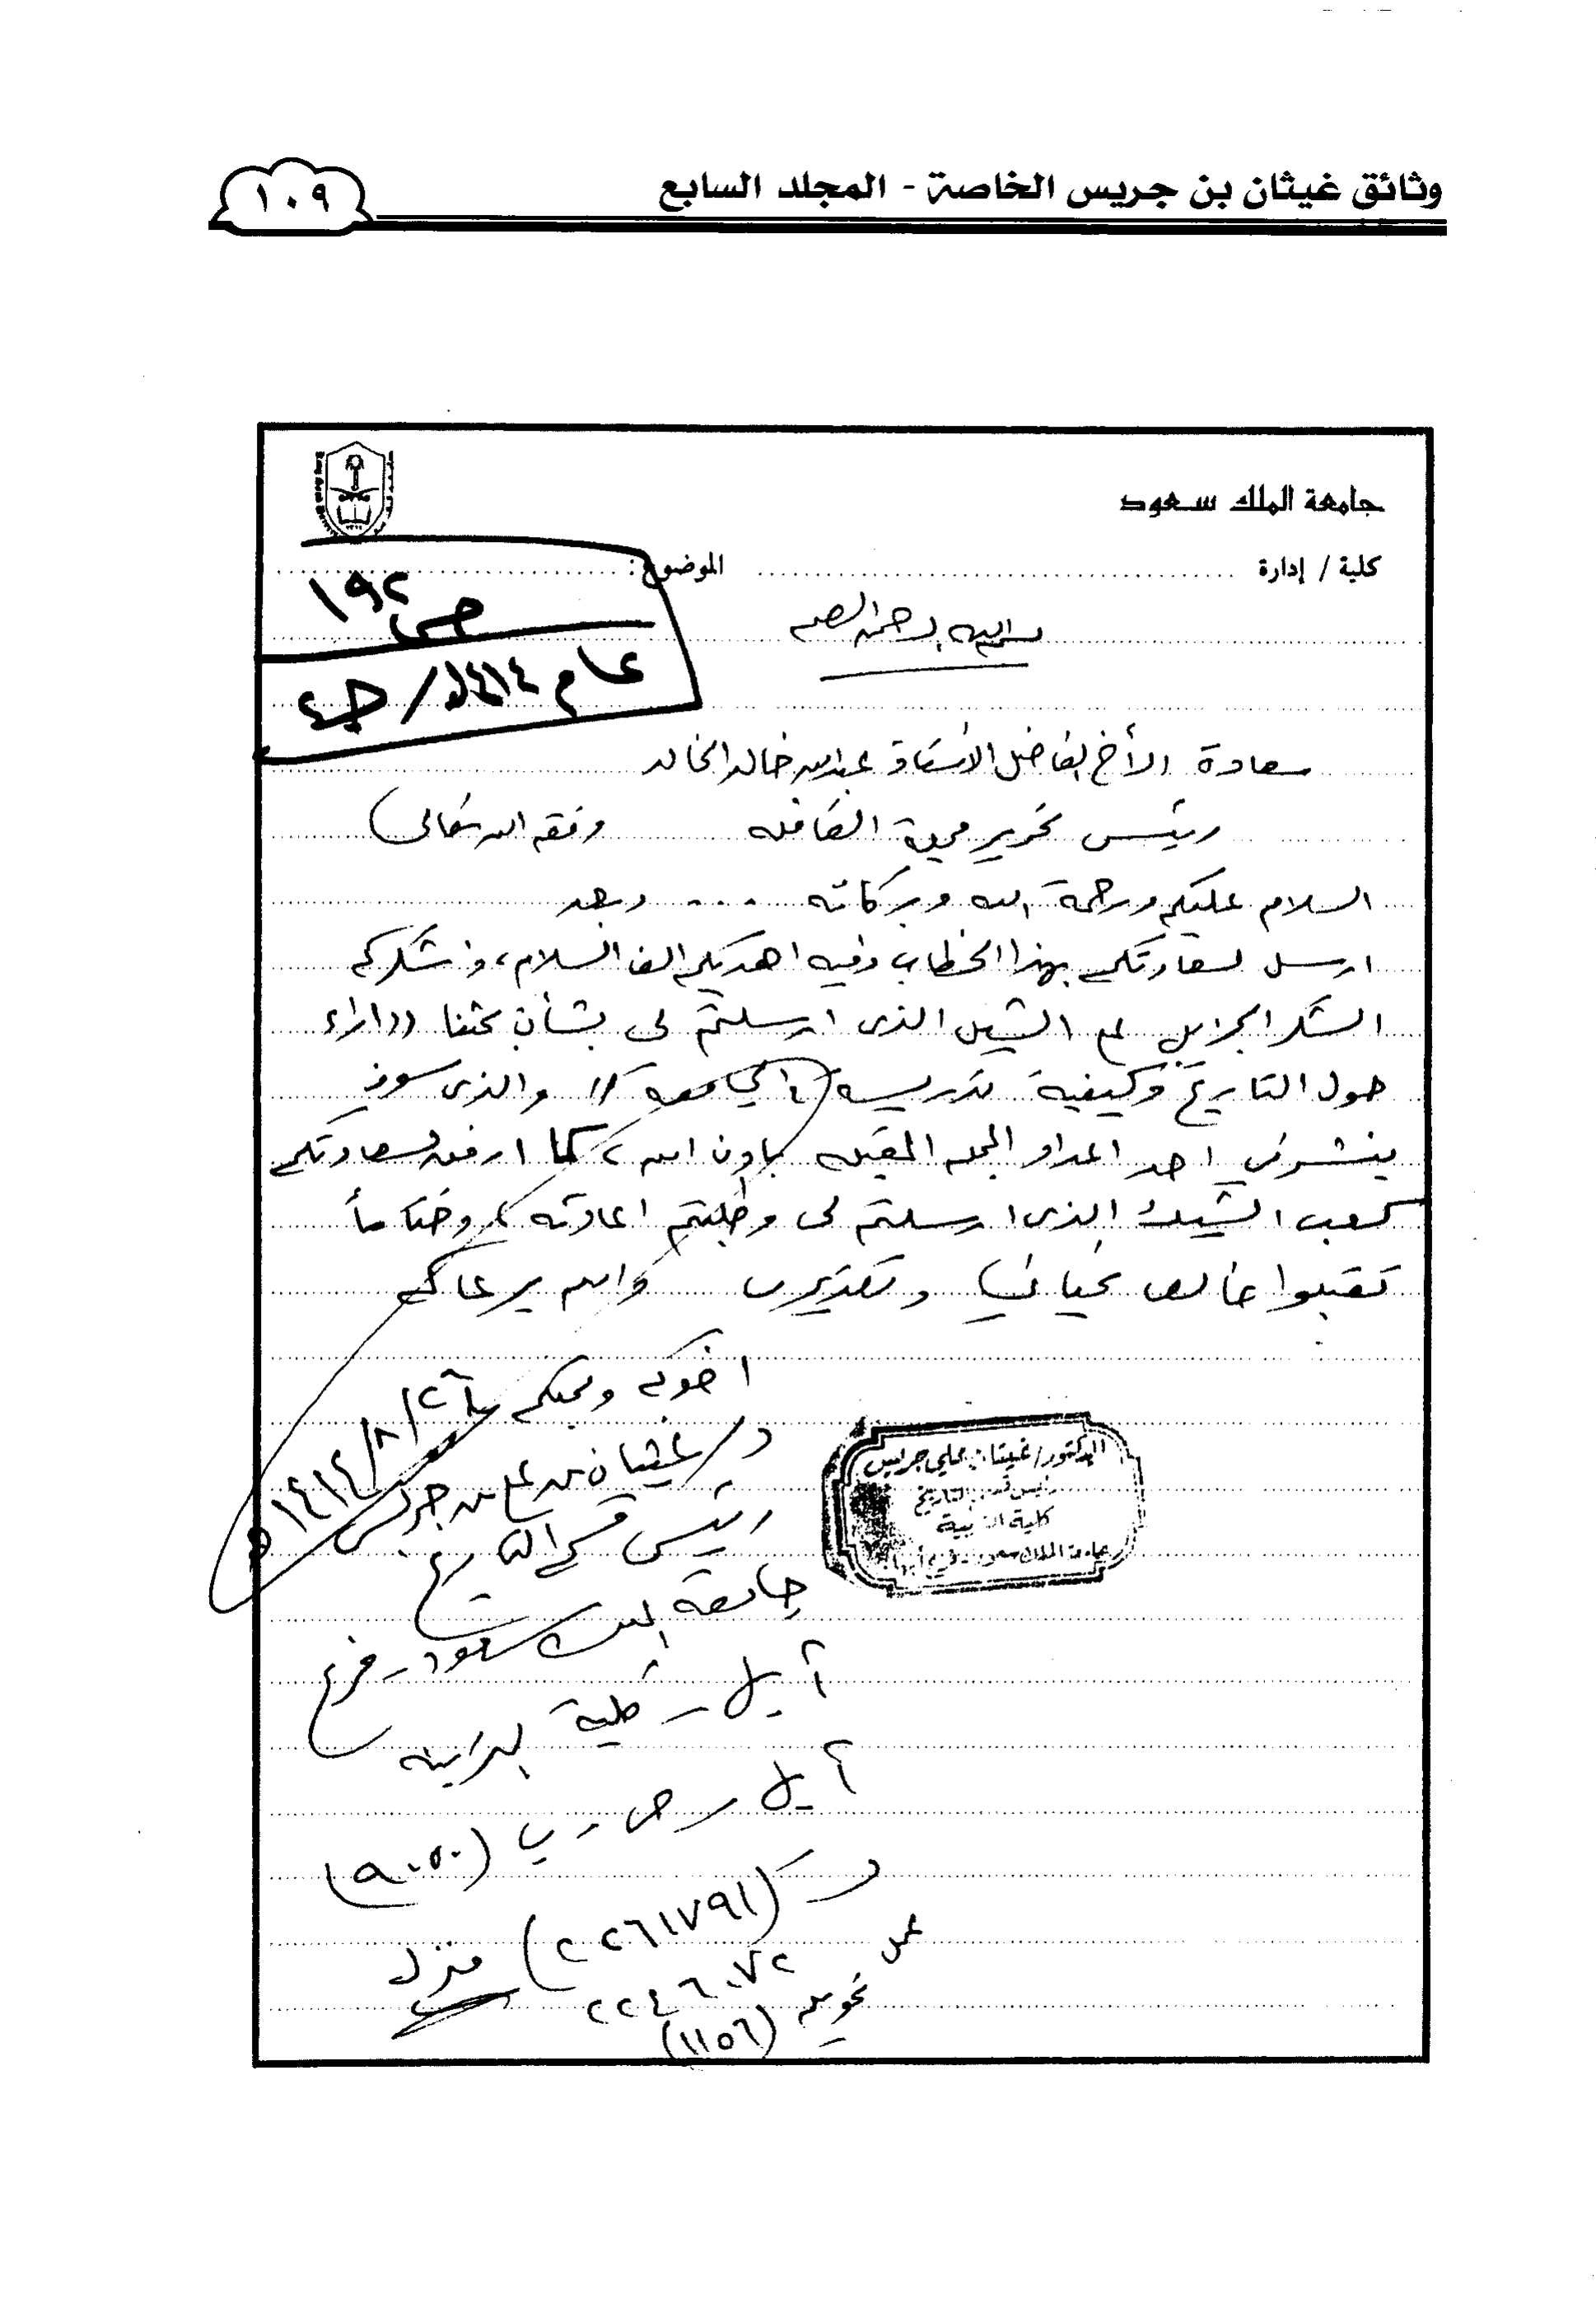 وثائق غيثان بن جريس الخاصة - المجلد السابع
١٠٩
جامعة الملك سعود
كلية / إدارة الموضوع:
ص ١٩٢
عام ١٤١٤هـ / ج٤
بسم الله الرحمن الرحيم
سعادة الأخ الفاضل الأستاذ عبدالله خالد الخالد
رئيس تحرير مجلة القافلة وفقه الله تعالى)
السلام عليكم ورحمة الله وبركاته .... وبعد
ارسل لسعادتكم بهذا الخطاب وفيه اهديكم الف السلام، ونشكركم
الشكر الجزيل على الشيك الذي ارسلتم لي بشأن بحثنا ((اراء
حول التاريخ وكيفية تدريسه في الجامعة)) والذي سوف
ينشر في احد اعداد المجلة المقبلة باذن الله، كما ارفق لسعادتكم
كعب الشيك الذي ارسلتم لي وطلبتم اعادته، وختاماً
تقبلوا خالص تحياتي وتقديري والله يرعاكم
اخوكم ومحبكم
١٤١٤/٨/٢٦هـ
د/ غيثان بن علي بن جريس
رئيس قسم التاريخ
جامعة الملك سعود - فرع
أبها - كلية التربية
أبها - ص . ب (٩٠٥٠)
ت (٢٢٦١٧٩١) منزل
عمل ٢٢٤٦٠٧٢
تحويلة (١١٥٦)
الدكتور/ غيثان علي جريس
رئيس قسم التاريخ
كلية التربية
جامعة الملك سعود - فرع أبها